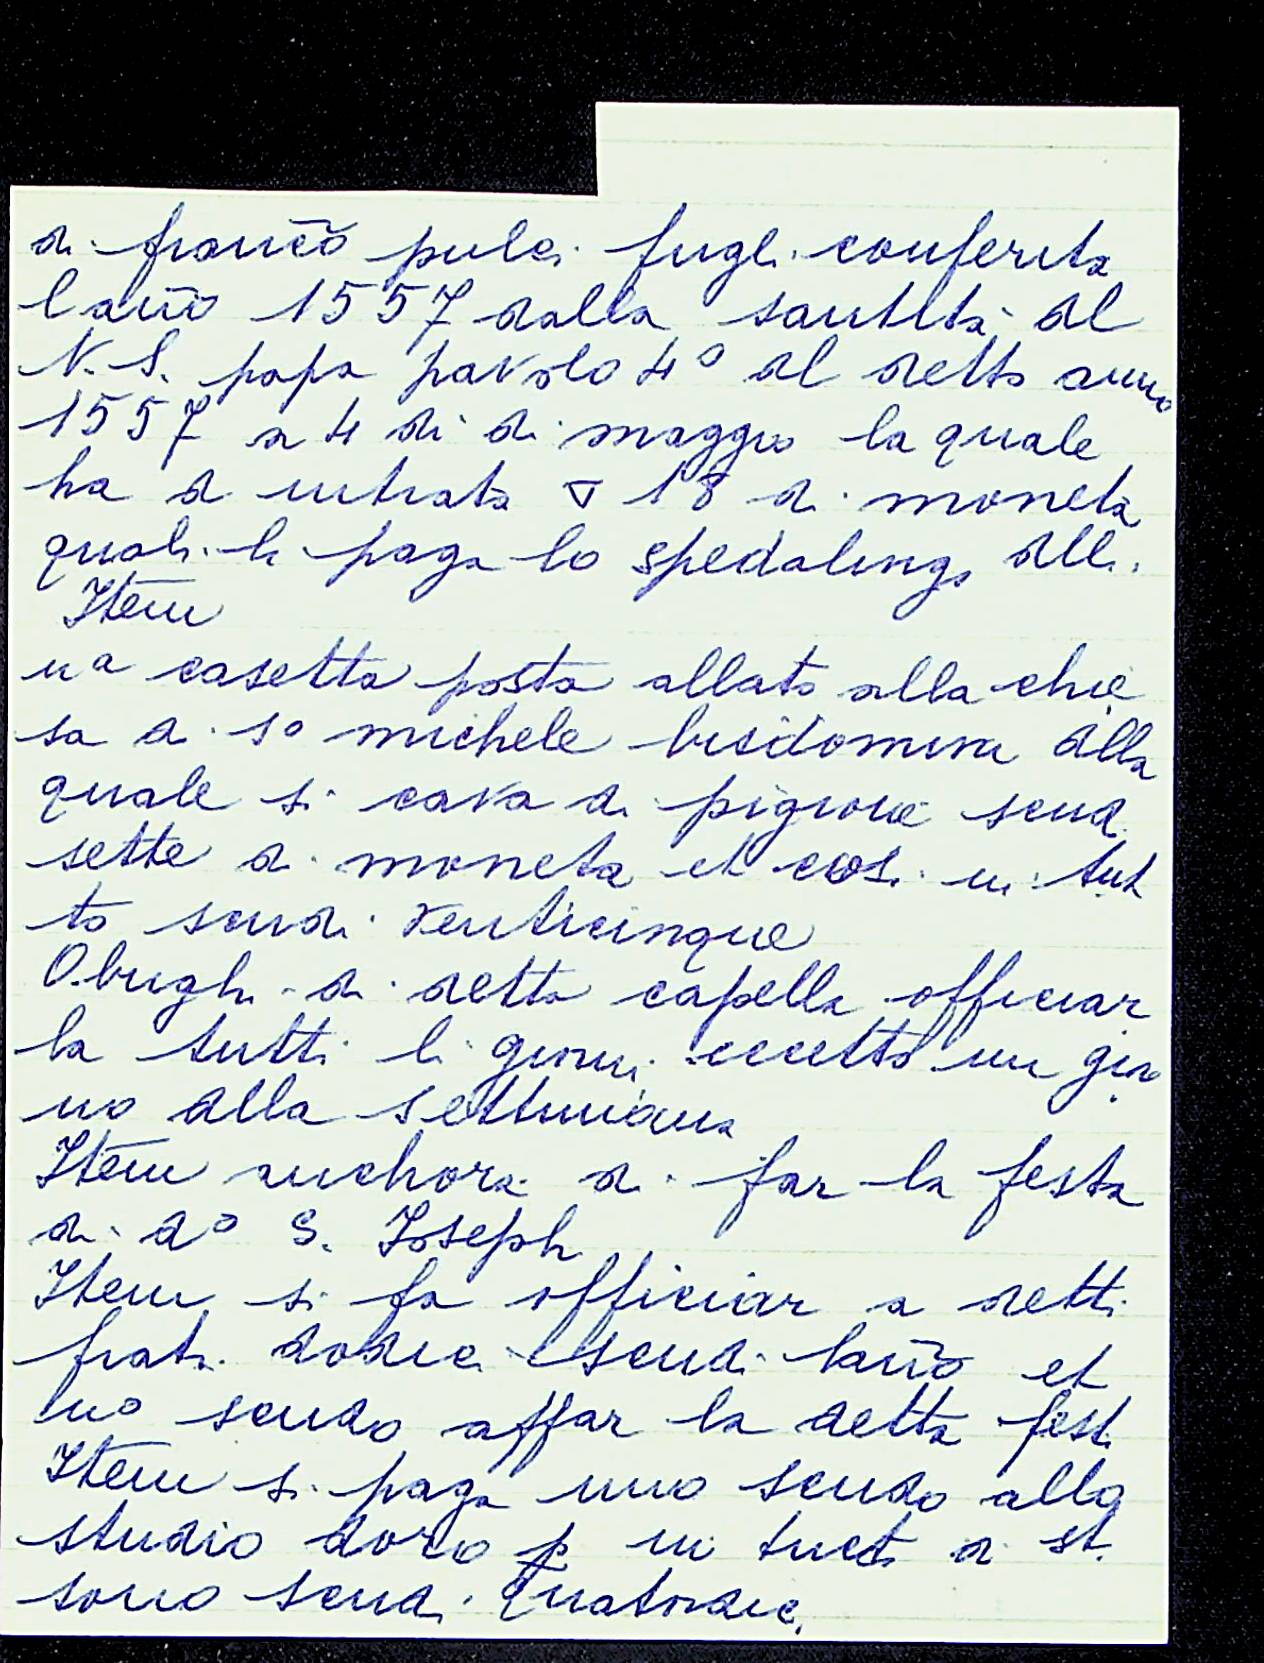 di franc̄o pulci fugli conferita
l an̄o 1557 dalla santità del
N. S. papa pavolo 4º del detto anno
1557 a 4 di di maggio la quale
ha di intrata ▽ 18 di moneta
quali li paga lo spedalingo delli
Item
nª casetta posta allato alla chie
sa di sº michele bisdomini della
quale si cava di pigione scudi
sette di moneta et cosi in tut
to scudi venticinque
Oblighi di detta capella officiar
la tutti li giorni eccetto un gior
no della settimana
Item anchora di far la festa
di dº S. Joseph
Item si fa officiar a detti
frati dodici scudi lan̄o et
nº scudo affar la detta festa
Item si paga uno scudo allo
studio doro p in tucti di st.
sono scudi quatordici